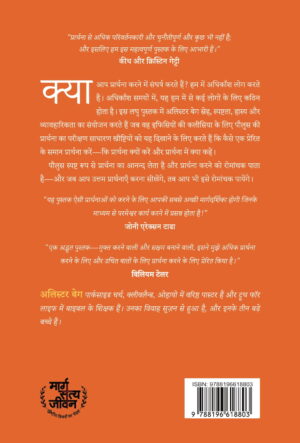 "प्रार्थना से अधिक परिवर्तनकारी और चुनौतीपूर्ण और कुछ भी नहीं है;
और इसलिए हम इस महत्वपूर्ण पुस्तक के लिए आभारी हैं।"
कीथ और क्रिस्टिन गेट्टी
क्या आप प्रार्थना करने में संघर्ष करते हैं? हम में अधिकाँश लोग करते
हैं। अधिकाँश समयों में, यह हम में से कई लोगों के लिए कठिन
होता है। इस लघु पुस्तक में अलिस्टर बेग स्नेह, स्पष्टता, हास्य और
व्यावहारिकता का संयोजन करते हैं जब वह इफिसियों की कलीसिया के लिए पौलुस की
प्रार्थना का परीक्षण साधारण ख्रीष्टियों को यह दिखाने के लिए करते हैं कि कैसे एक प्रेरित
के समान प्रार्थना करें—कि प्रार्थना क्यों करें और प्रार्थना में क्या कहें।
पौलुस स्पष्ट रूप से प्रार्थना का आनन्द लेता है और प्रार्थना करने को रोमांचक पाता
है—और जब आप उत्तम प्रार्थनाएँ करना सीखेंगे, तब आप भी इसे रोमांचक पायेंगे।
"यह पुस्तक ऐसी प्रार्थनाओं को करने के लिए आपकी सबसे अच्छी मार्गदर्शिका होगी जिनके
माध्यम से परमेश्वर कार्य करने में प्रसन्न होता है!"
जोनी एरेक्सन टाडा
"एक अद्भुत पुस्तक—मुक्त करने वाली और सक्षम बनाने वाली, इसने मुझे अधिक प्रार्थना
करने के लिए और उचित बातों के लिए प्रार्थना करने के लिए प्रेरित किया है।"
विलियम टेलर
अलिस्टर बेग पार्कसाइड चर्च, क्लीवलैण्ड, ओहायो में वरिष्ठ पास्टर हैं और ट्रुथ फॉर
लाइफ में बाइबल के शिक्षक हैं। उनका विवाह सूज़न से हुआ है, और इनके तीन बड़े
बच्चे हैं।
मार्ग
सत्य
जीवन
ISBN: 9788196618803
9 788196 618803